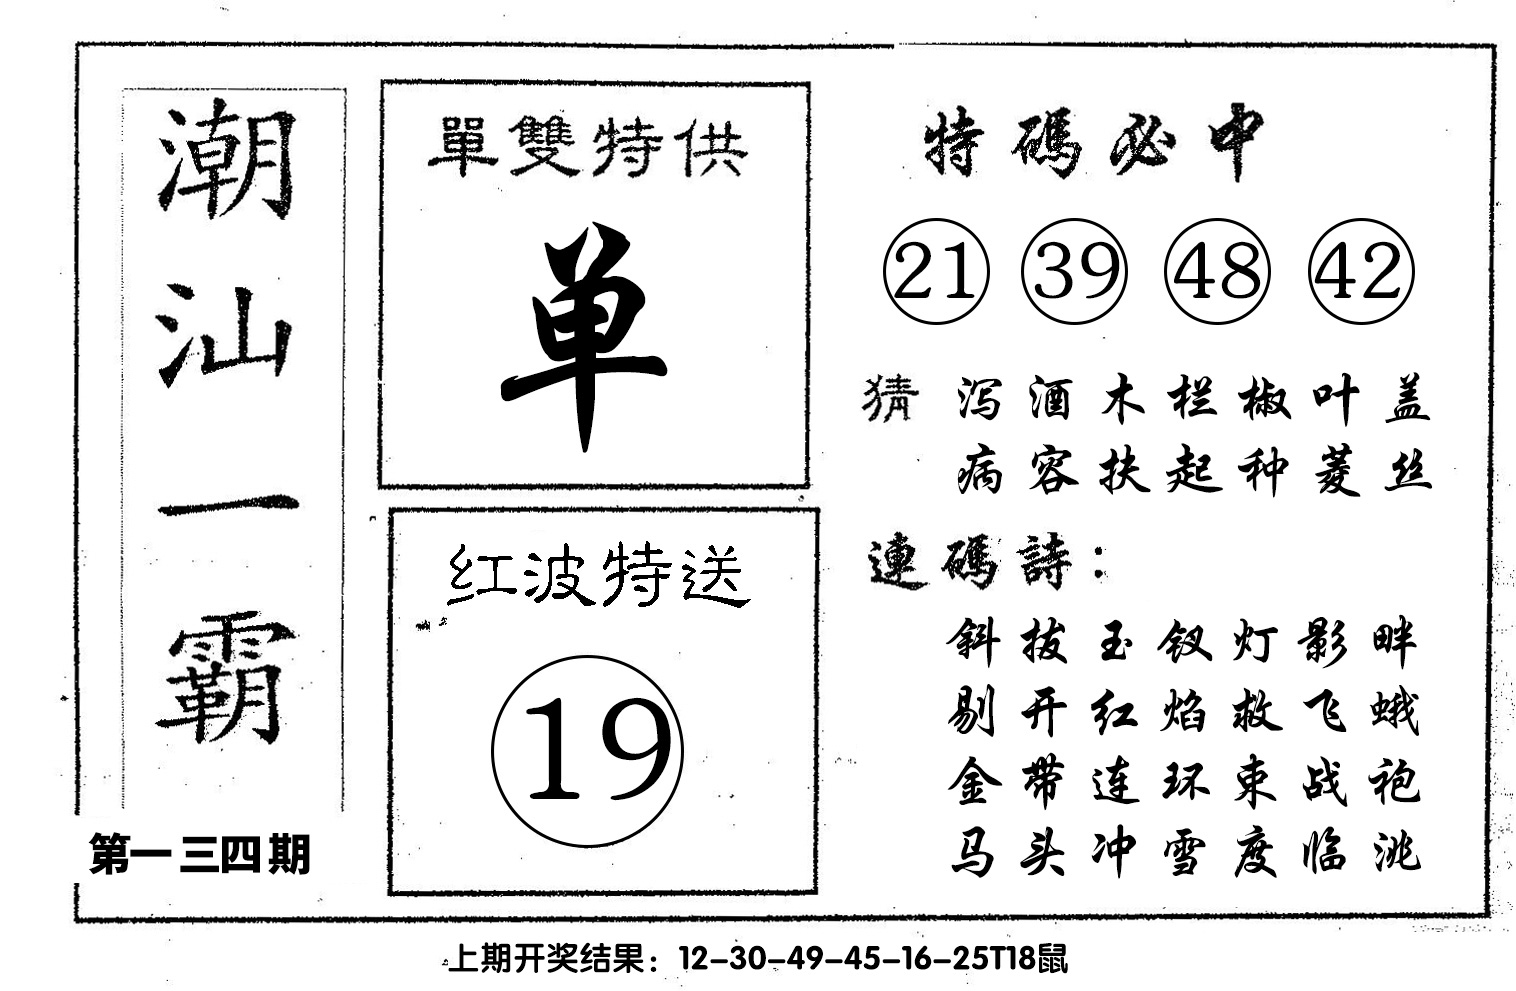 潮汕一霸
第一三四期
單雙特供
单
红波特送
19
特碼必中
21 39 48 42
猜 泻酒木栏椒叶盖
病容扶起种菱丝
連碼詩：
斜拔玉钗灯影畔
剔开红焰救飞蛾
金带连环束战袍
马头冲雪度临洮
上期开奖结果：12-30-49-45-16-25T18鼠